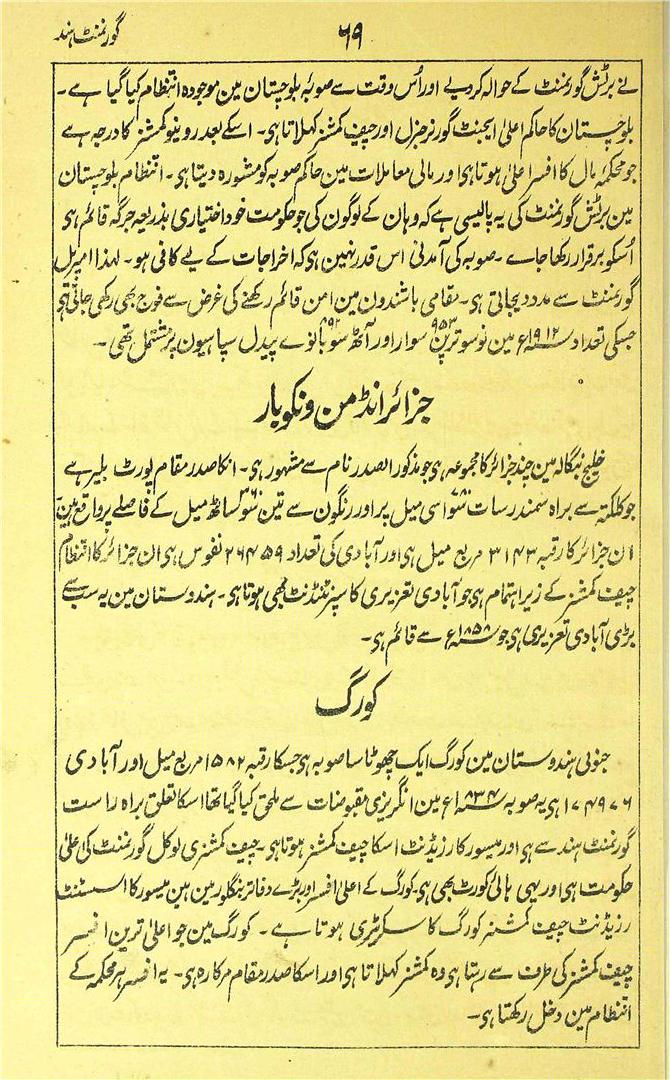 گورنمنٹ ہند
۶۹
نے برٹش گورنمنٹ کے حوالہ کردیے اور اُس وقت سے صوبۂ بلوچستان مین موجودہ انتظام کیا گیا ہے۔
بلوچستان کا حاکم اعلیٰ ایجنٹ گورنر جنرل اور چیف کمشنر کہلاتا ہی۔ اسکے بعد روینو کمشنر کا درجہ ہے
جو محکمہ مال کا افسر اعلیٰ ہوتا ہی اور مالی معاملات مین حاکم صوبہ کو مشورہ دیتا ہی۔ انتظام بلوچستان
مین برٹش گورنمنٹ کی یہ پالیسی ہے کہ وہان کے لوگون کی جو حکومت خود اختیاری بذریعہ جرگہ قائم ہی
اُسکو برقرار رکھا جاے۔ صوبہ کی آمدنی اس قدر نہین ہی کہ اخراجات کے لیے کافی ہو۔ لہذا امپریل
گورنمنٹ سے مدد دیجاتی ہی۔ مقامی باشندون مین امن قائم رکھنے کی غرض سے فوج بھی رکھی جاتی ہی
جسکی تعداد سنہ ۱۹۱۲ء مین نو سو ترپن ۹۵۳ سوار اور آٹھ سو بانوے ۸۹۲ پیدل سپاہیون پر مشتمل تھی۔
جزائر انڈمن و نکوبار
خلیج بنگالہ مین چند جزائر کا مجموعہ ہی جو مذکور الصدر نام سے مشہور ہی۔ انکا صدر مقام پورٹ بلیر ہے
جو کلکتہ سے براہ سمندر سات سو اسی ۷۸۰ میل پر اور رنگون سے تین سو ساٹھ ۳۶۰ میل کے فاصلے پر واقع ہین
ان جزائر کا رقبہ ۳۱۴۳ مربع میل ہی اور آبادی کی تعداد ۲۶۴۵۹ نفوس ہی ان جزائر کا انتظام
چیف کمشنر کے زیر اہتمام ہی جو آبادی تعزیری کا سپرنٹنڈنٹ بھی ہوتا ہی۔ ہندوستان مین یہ سب سے
بڑی آبادی تعزیری ہی جو سنہ ۱۸۵۸ء سے قائم ہی۔
کورگ
جنوبی ہندوستان مین کورگ ایک چھوٹا سا صوبہ ہی جسکا رقبہ ۱۵۸۲ مربع میل اور آبادی
۱۷۴۹۷۶ ہی یہ صوبہ سنہ ۱۸۳۴ء مین انگریزی مقبوضات سے ملحق کیا گیا تھا اسکا تعلق براہ راست
گورنمنٹ ہند سے ہی اور میسور کا رزیڈنٹ اسکا چیف کمشنر ہوتا ہی۔ چیف کمشنری لوکل گورنمنٹ کی اعلیٰ
حکومت ہی اور یہی ہائی کورٹ بھی ہی۔ کورگ کے اعلیٰ افسر اور بڑے دفاتر بنگلور مین ہین میسور کا اسسٹنٹ
رزیڈنٹ چیف کمشنر کورگ کا سکرٹری ہوتا ہے۔ کورگ مین جو اعلیٰ ترین افسر
چیف کمشنر کی طرف سے رہتا ہی وہ کمشنر کہلاتا ہی اور اسکا صدر مقام مرکارہ ہی۔ یہ افسر ہر محکمہ کے
انتظام مین دخل رکھتا ہی۔